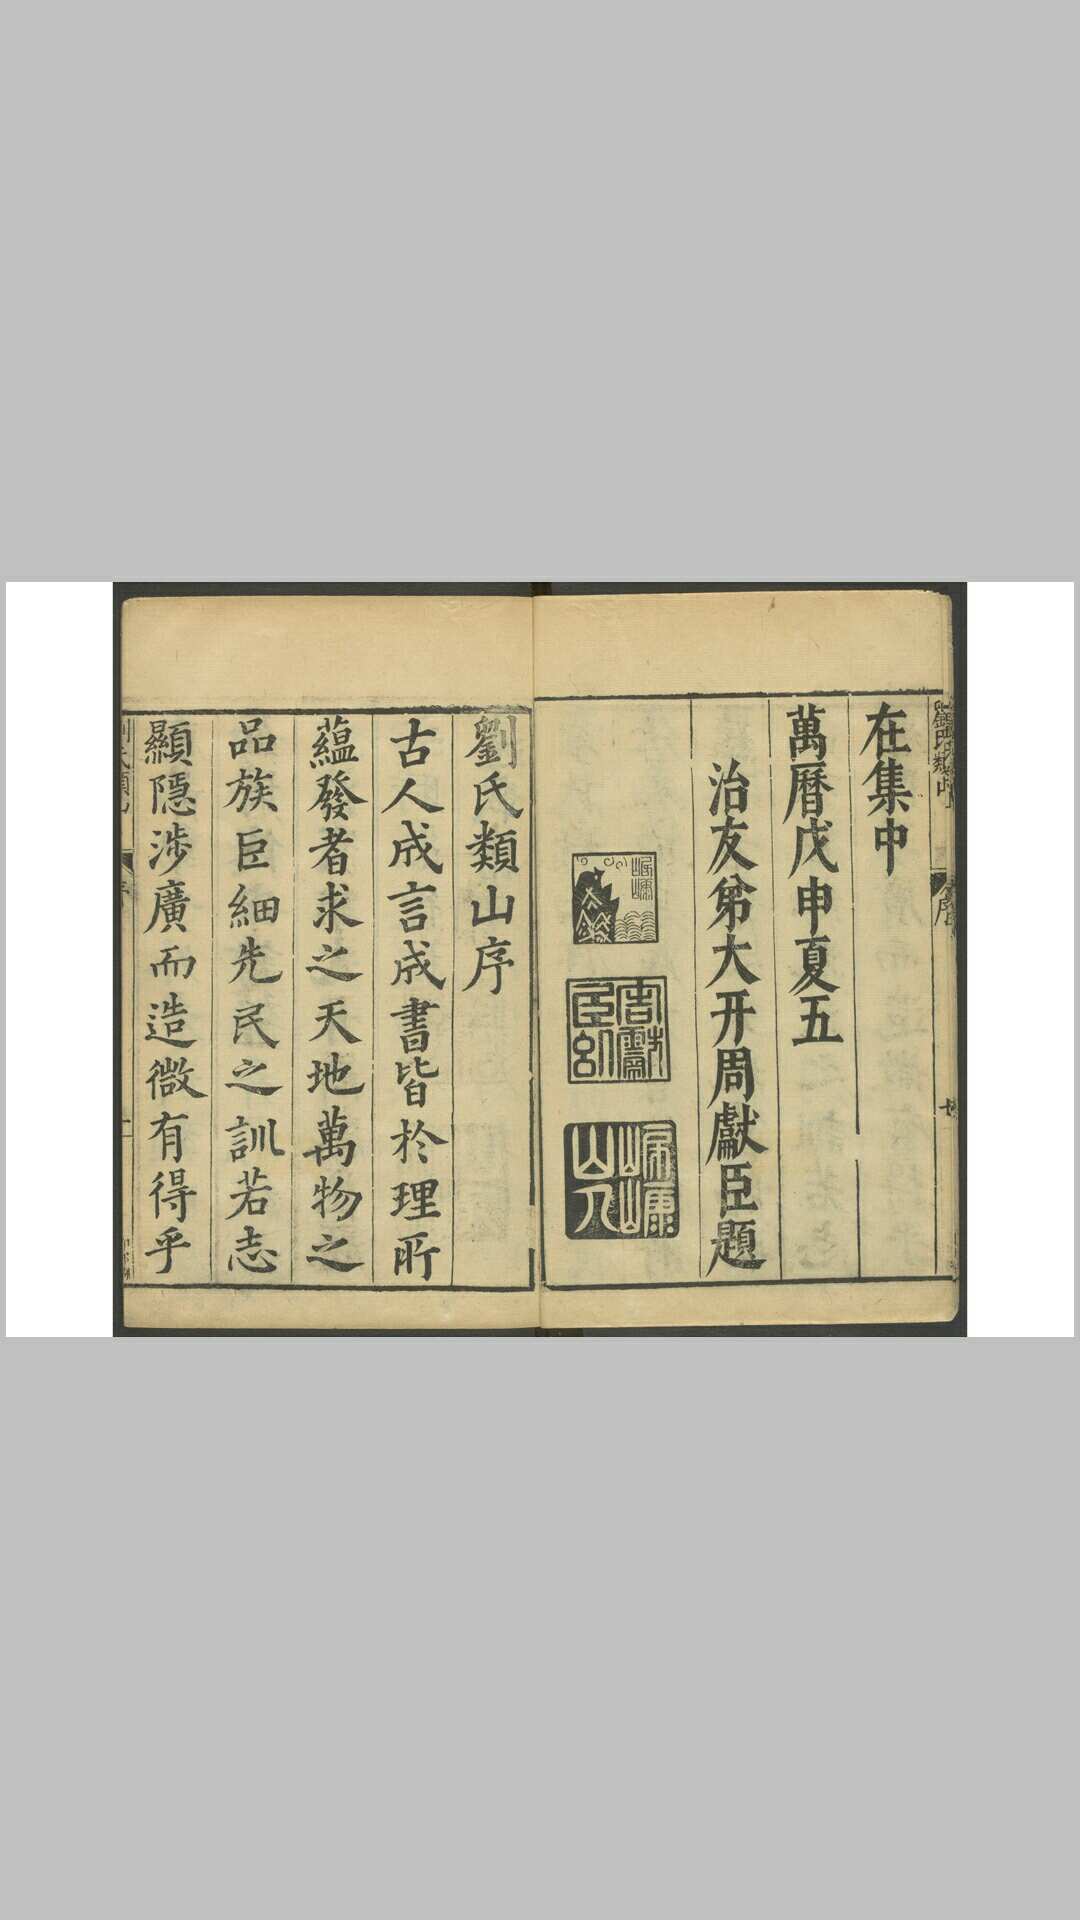 劉氏類山
序
在集中
萬曆戊申夏五
治友弟大开周獻臣題
周獻臣印
山人
劉氏類山序
古人成言成書皆於理所
蘊發者求之天地萬物之
品族巨細先民之訓若志
顯隱涉廣而造微有得乎